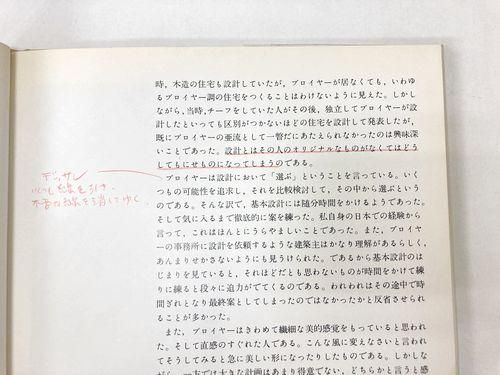 時，木造の住宅も設計していたが，ブロイヤーが居なくても，いわゆ
るブロイヤー調の住宅をつくることはわけないように見えた。しかし
ながら，当時，チーフをしていた人がその後，独立してブロイヤーが設
計したといっても区別がつかないほどの住宅を設計して発表したが，
既にブロイヤーの亜流として一管だにあたえられなかったのは興味深
いことであった。設計とはその人のオリジナルなものがなくてはどう
してもにせものになってしまうのである。
ブロイヤーは設計において「選ぶ」ということを言っている。いく
つもの可能性を追求し，それを比較検討して，その中から選ぶという
のである。そんな訳で，基本設計には随分時間をかけるようであった。
そして気に入るまで徹底的に案を練った。私自身の日本での経験から
言って，これはほんとにうらやましいことであった。また，ブロイヤー
の事務所に設計を依頼するような建築主はかなり理解があるらしく，
あんまりせかさないようにも見うけられた。であるから基本設計のは
じまりを見ていると，それほどだとも思わないものが時間をかけて練
りに練ると段々に迫力がでてくるのである。われわれはその途中で時
間ぎれとなり最終案としてしまったのではなかったかと反省させられ
ることが多かった。
また，ブロイヤーはきわめて繊細な美的感覚をもっていると思われ
た。そして直感のすぐれた人である。こんな風に変えなさいと言われ
てそうしてみると急に美しい形になったりしたものである。しかしな
がら，一方では大きな計画はあまり得意でない，どちらかと言うと感
デッサン
いくつも線を引き、
不要な線を消してゆく。